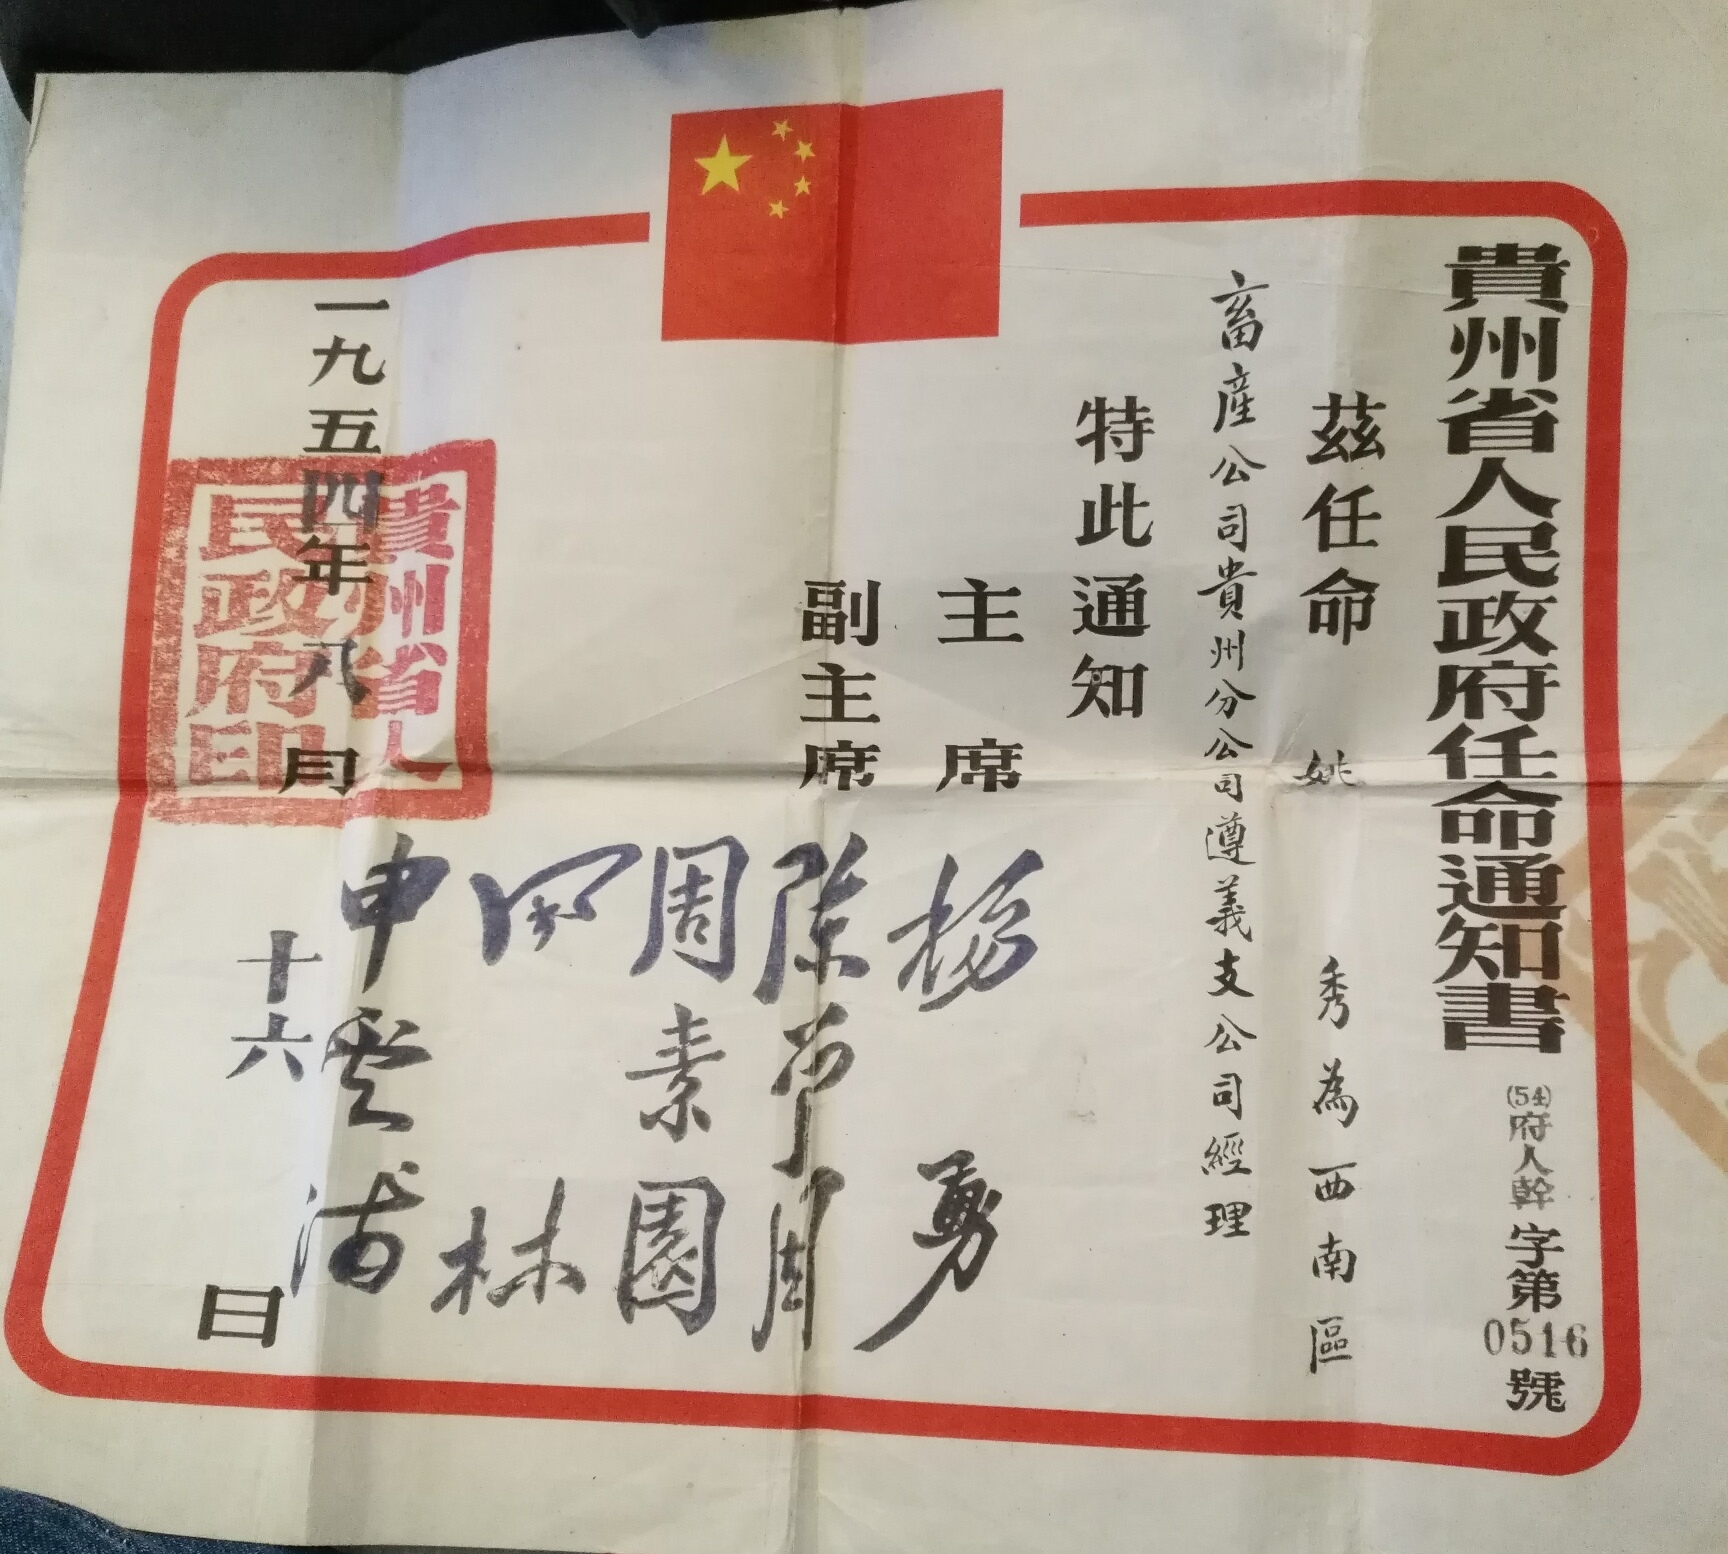 貴州省人民政府任命通知書
(54)府人幹字第0516號
茲任命 姚秀為西南區
畜產公司貴州分公司遵義支公司經理
特此通知
主席 楊勇
副主席 陳曾固
周素園
申雲浦
一九五四年八月十六日
貴州省人
民政府印